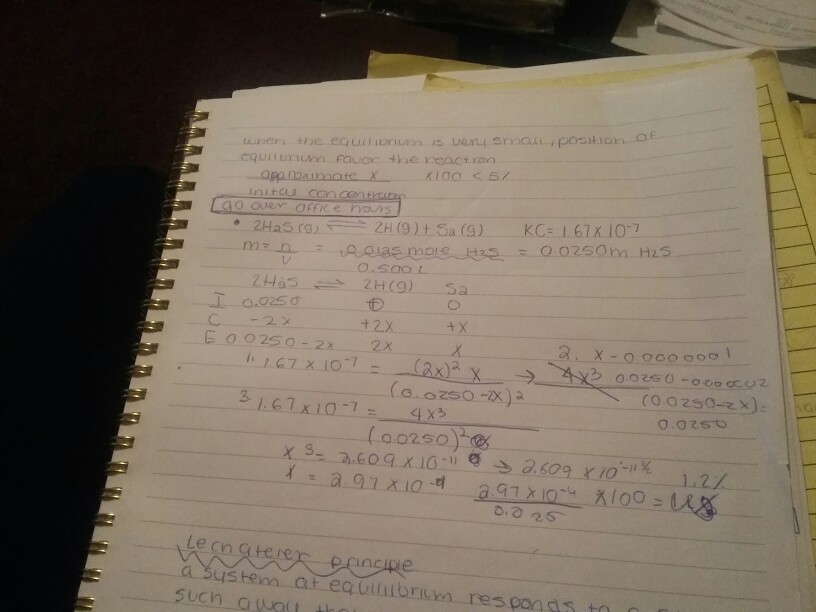 when the equilibrium is very small, position of
equilibrium favor the reaction
approximate x x100 < 5%
initial concentration
go over office hours
• 2H2S(g) ⇌ 2H(g) + S2(g) KC = 1.67 x 10-7
m = n/v = 0.0125 mole H2S / 0.500 L = 0.0250 m H2S
2H2S ⇌ 2H(g) S2
I 0.0250 0 0
C -2x +2x +x
E 0.0250-2x 2x x
1. 1.67 x 10-7 = (2x)2 x / (0.0250-2x)2 →
2. x-0.0000001
4x3 0.0250-0.0000002
(0.0250-2x)=
0.0250
3 1.67 x 10-7 = 4x3 / (0.0250)2
x3 = 2.609 x 10-11 → 2.609 x 10-11
x = 2.97 x 10-4 2.97 x 10-4 / 0.025 x100 = 1.2%
Lechatelier principle
a system at equilibrium responds to a
such a way that